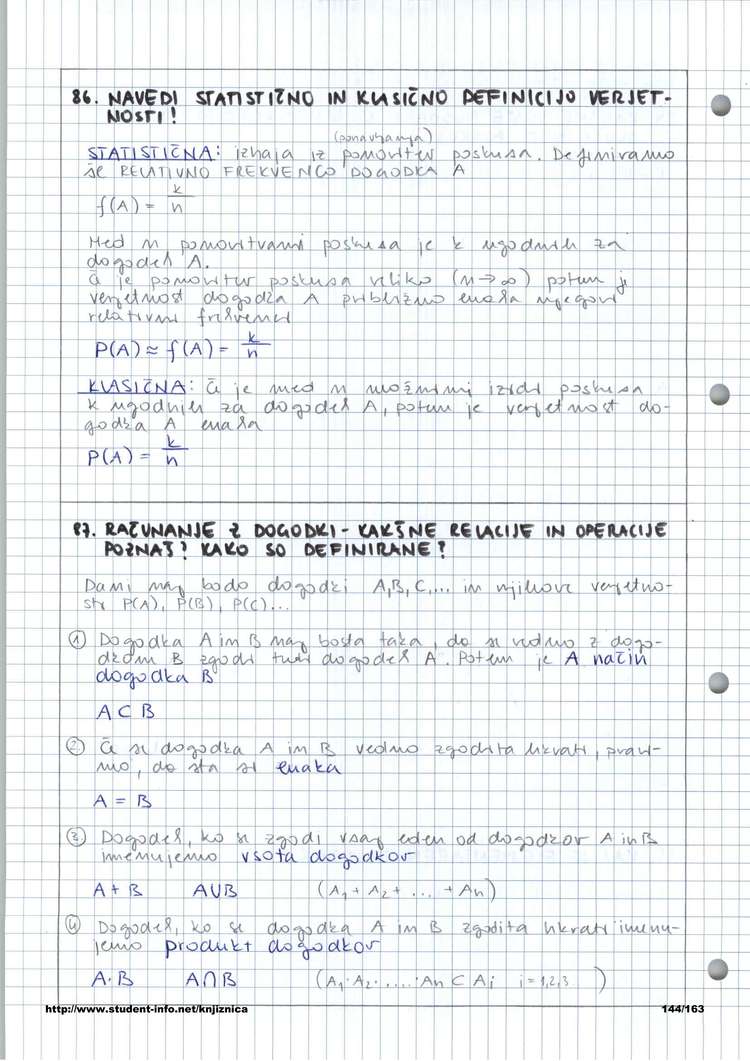 86. NAVEDI STATISTIČNO IN KLASIČNO DEFINICIJO VERJET-
NOSTI!
(ponavljanja)
STATISTIČNA: izhaja iz ponovitev poskusa. Definiramo
še RELATIVNO FREKVENCO DOGODKA A
f(A) = k/n
Med n ponovitvami poskusa je k ugodnih za
dogodek A.
Če je ponovitev poskusa veliko (n→∞) potem je
verjetnost dogodka A približno enaka njegovi
relativni frekvenci
P(A) ≈ f(A) = k/n
KLASIČNA: Če je med n možnimi izidi poskusa
k ugodnih za dogodek A, potem je verjetnost do-
godka A enaka
P(A) = k/n
87. RAČUNANJE Z DOGODKI - KAKŠNE RELACIJE IN OPERACIJE
POZNAŠ? KAKO SO DEFINIRANE?
Dani naj bodo dogodki A, B, C,... in njihove verjetno-
sti P(A), P(B), P(C)...
① Dogodka A in B naj bosta taka, da se vedno z dogo-
dkom B zgodi tudi dogodek A. Potem je A način
dogodka B
A ⊂ B
② Če se dogodka A in B vedno zgodita hkrati, pravi-
mo, da sta si enaka
A = B
③ Dogodek, ko se zgodi vsaj eden od dogodkov A in B
imenujemo vsota dogodkov
A + B A∪B (A₁ + A₂ + ... + An)
④ Dogodek, ko se dogodka A in B zgodita hkrati imenu-
jemo produkt dogodkov
A·B A∩B (A₁·A₂·....·An ⊂ Ai i = 1,2,3 )
http://www.student-info.net/knjiznica 144/163